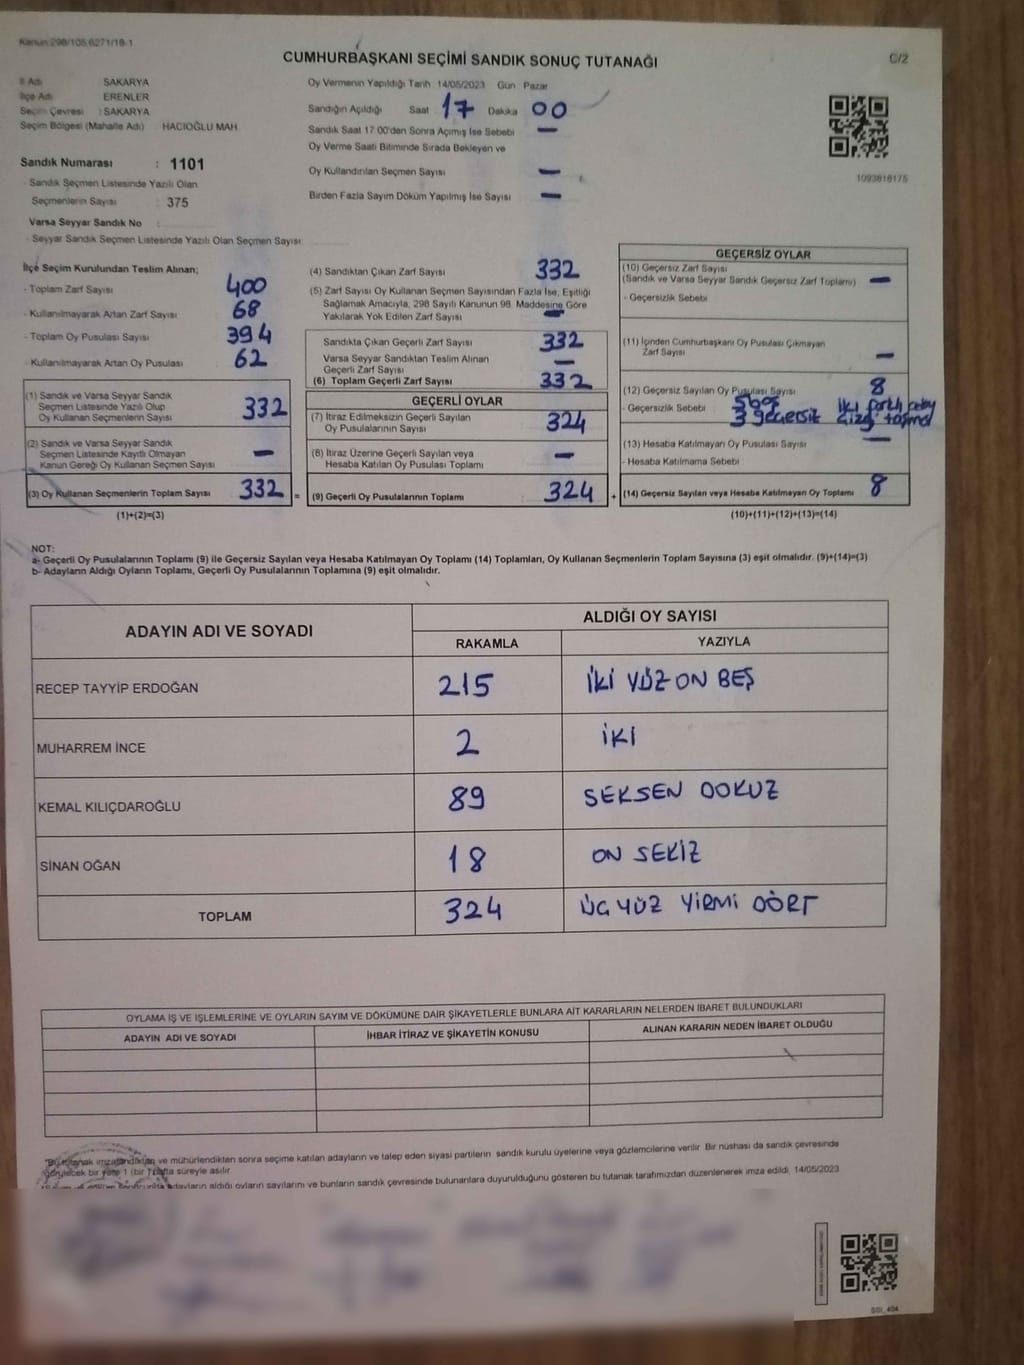 Kanun:298/105,6271/18-1
CUMHURBAŞKANI SEÇİMİ SANDIK SONUÇ TUTANAĞI
C/2
İl Adı SAKARYA
İlçe Adı ERENLER
Seçim Çevresi : SAKARYA
Seçim Bölgesi (Mahalle Adı) HACIOĞLU MAH
Sandık Numarası : 1101
- Sandık Seçmen Listesinde Yazılı Olan
Seçmenlerin Sayısı : 375
Varsa Seyyar Sandık No :
- Seyyar Sandık Seçmen Listesinde Yazılı Olan Seçmen Sayısı:
Oy Vermenin Yapıldığı Tarih 14/05/2023 Gün Pazar
Sandığın Açıldığı Saat 17 Dakika 00
Sandık Saat 17:00'den Sonra Açımış İse Sebebi —
Oy Verme Saati Bitiminde Sırada Bekleyen ve
Oy Kullandırılan Seçmen Sayısı —
Birden Fazla Sayım Döküm Yapılmış İse Sayısı —
1093816175
İlçe Seçim Kurulundan Teslim Alınan;
- Toplam Zarf Sayısı 400
- Kullanılmayarak Artan Zarf Sayısı 68
- Toplam Oy Pusulası Sayısı 394
- Kullanılmayarak Artan Oy Pusulası 62
(1) Sandık ve Varsa Seyyar Sandık
Seçmen Listesinde Yazılı Olup
Oy Kullanan Seçmenlerin Sayısı 332
(2) Sandık ve Varsa Seyyar Sandık
Seçmen Listesinde Kayıtlı Olmayan
Kanun Gereği Oy Kullanan Seçmen Sayısı —
(3) Oy Kullanan Seçmenlerin Toplam Sayısı 332 =
(1)+(2)=(3)
(4) Sandıktan Çıkan Zarf Sayısı 332
(5) Zarf Sayısı Oy Kullanan Seçmen Sayısından Fazla İse, Eşitliği
Sağlamak Amacıyla, 298 Sayılı Kanunun 98. Maddesine Göre
Yakılarak Yok Edilen Zarf Sayısı —
Sandıkta Çıkan Geçerli Zarf Sayısı 332
Varsa Seyyar Sandıktan Teslim Alınan
Geçerli Zarf Sayısı —
(6) Toplam Geçerli Zarf Sayısı 332
GEÇERLİ OYLAR
(7) İtiraz Edilmeksizin Geçerli Sayılan
Oy Pusulalarının Sayısı 324
(8) İtiraz Üzerine Geçerli Sayılan veya
Hesaba Katılan Oy Pusulası Toplamı —
(9) Geçerli Oy Pusulalarının Toplamı 324 +
GEÇERSİZ OYLAR
(10) Geçersiz Zarf Sayısı
(Sandık ve Varsa Seyyar Sandık Geçersiz Zarf Toplamı) —
- Geçersizlik Sebebi
(11) İçinden Cumhurbaşkanı Oy Pusulası Çıkmayan
Zarf Sayısı —
(12) Geçersiz Sayılan Oy Pusulası Sayısı 8
- Geçersizlik Sebebi 5 boş iki farklı
3 geçersiz çizgi taşma
(13) Hesaba Katılmayan Oy Pusulası Sayısı —
- Hesaba Katılmama Sebebi
(14) Geçersiz Sayılan veya Hesaba Katılmayan Oy Toplamı 8
(10)+(11)+(12)+(13)=(14)
NOT:
a- Geçerli Oy Pusulalarının Toplamı (9) ile Geçersiz Sayılan veya Hesaba Katılmayan Oy Toplamı (14) Toplamları, Oy Kullanan Seçmenlerin Toplam Sayısına (3) eşit olmalıdır. (9)+(14)=(3)
b- Adayların Aldığı Oyların Toplamı, Geçerli Oy Pusulalarının Toplamına (9) eşit olmalıdır.
ADAYIN ADI VE SOYADI
ALDIĞI OY SAYISI
RAKAMLA YAZIYLA
RECEP TAYYİP ERDOĞAN 215 İKİ YÜZ ON BEŞ
MUHARREM İNCE 2 İKİ
KEMAL KILIÇDAROĞLU 89 SEKSEN DOKUZ
SİNAN OĞAN 18 ON SEKİZ
TOPLAM 324 ÜÇ YÜZ YİRMİ DÖRT
OYLAMA İŞ VE İŞLEMLERİNE VE OYLARIN SAYIM VE DÖKÜMÜNE DAİR ŞİKAYETLERLE BUNLARA AİT KARARLARIN NELERDEN İBARET BULUNDUKLARI
ADAYIN ADI VE SOYADI İHBAR İTİRAZ VE ŞİKAYETİN KONUSU ALINAN KARARIN NEDEN İBARET OLDUĞU
"Bu tutanak imzalandıktan ve mühürlendikten sonra seçime katılan adayların ve talep eden siyasi partilerin sandık kurulu üyelerine veya gözlemcilerine verilir. Bir nüshası da sandık çevresinde
görülecek bir yere 1 (bir) hafta süreyle asılır.
adayların aldığı oyların sayılarını ve bunların sandık çevresinde bulunanlara duyurulduğunu gösteren bu tutanak tarafımızdan düzenlenerek imza edildi. 14/05/2023
SSI_404